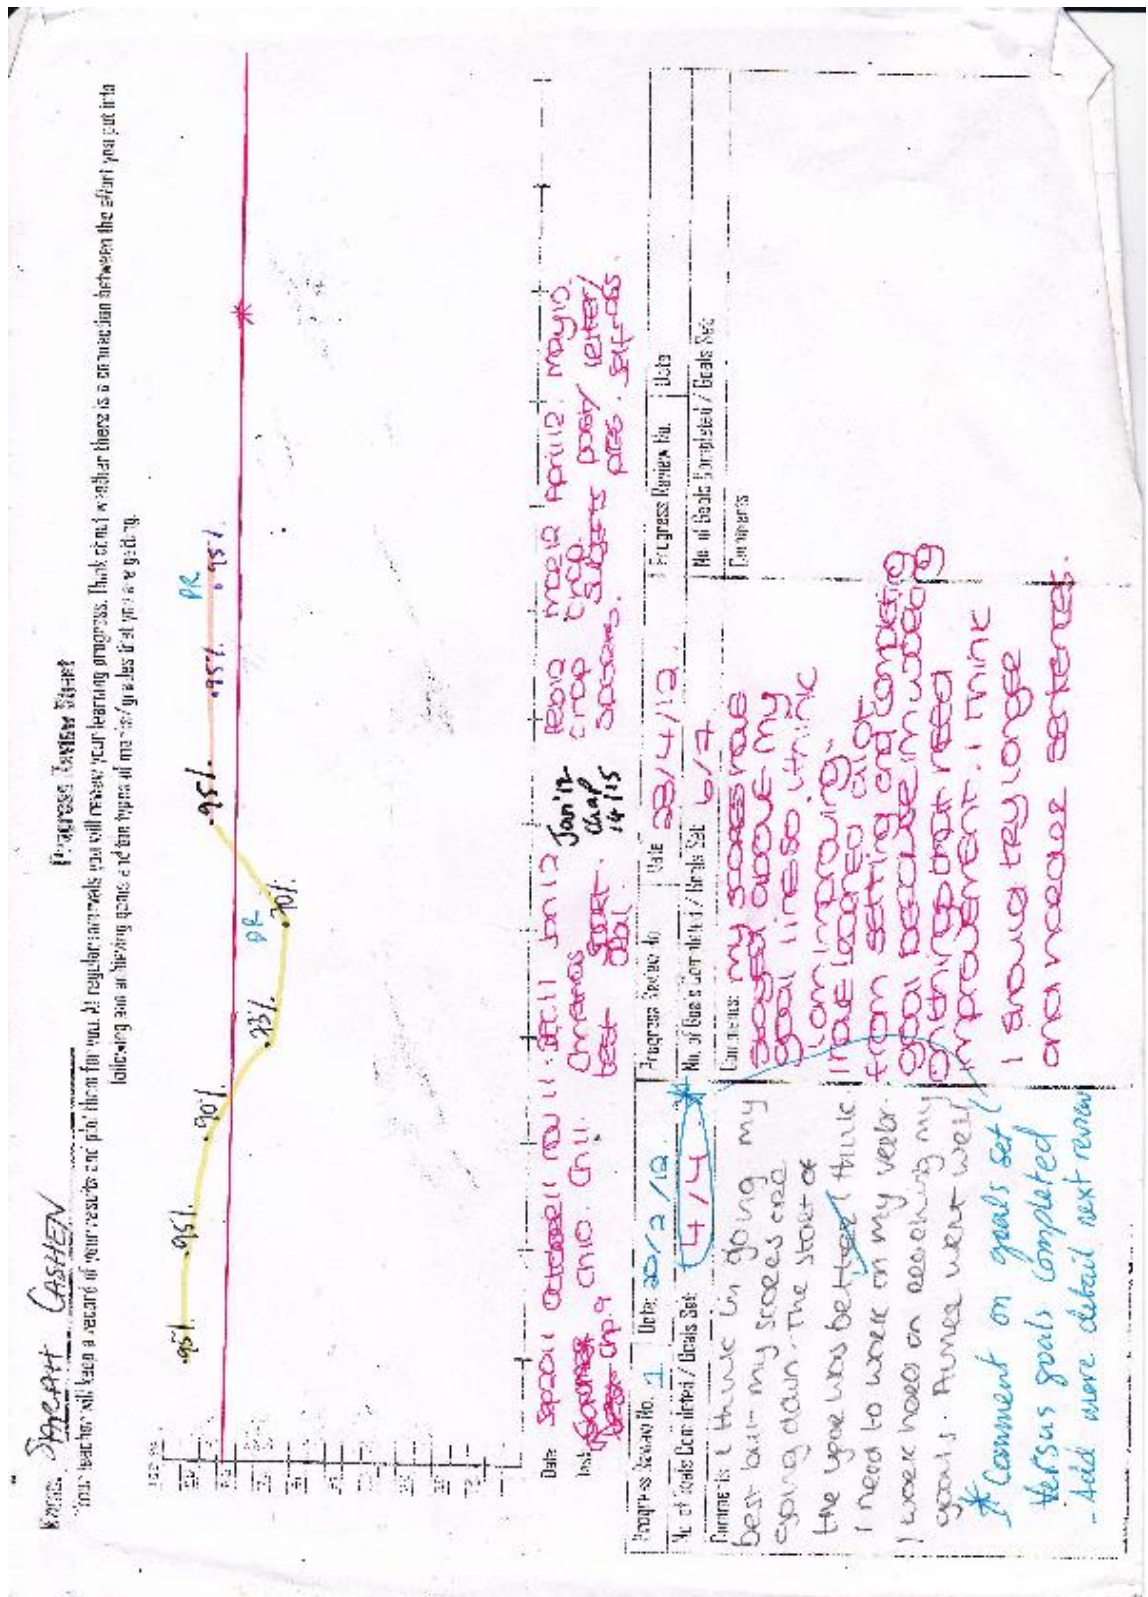 Progress Review Sheet
Name: SARAH CASHEN
Your teacher will keep a record of your results and plot them for you. At regular intervals you will review your learning progress. Think about whether there is a connection between the effort you put into
following and achieving goals and the types of marks/grades that you are getting.
.95%
.95%
.90%
.83%
.70%
PR
.95%
.95%
PR
.95%
Date Sep 2011 October 11 Nov 11 Dec 11 Jan 12 Jan '12 Feb 12 Mar 12 April 12 May 12
Task
Chp. 9 Ch10. Ch11. Christmas test
Chap 14/15
subjects
letter/
Progress Review No. 1 Date: 20/2/12
No. of Goals Completed / Goals Set: 4/4
Comments: I think Im going my
best but my scores are
going down. The start of
the year was better I think
I need to work on my
I work hard on reaching my
goals. went well
* Comment on goals set /
versus goals completed
- Add more detail next review
Progress Review No. Date 23/4/12
No. of Goals Completed / Goals Set: 6/7
Comments: my scores have
stayed above my
goal line so I think
I am improving.
I have learned alot
from setting and completing
goal because im working
on things that need
improvement. I think
I should try longer
and neater sentences.
Progress Review No. Date
No. of Goals Completed / Goals Set:
Comments